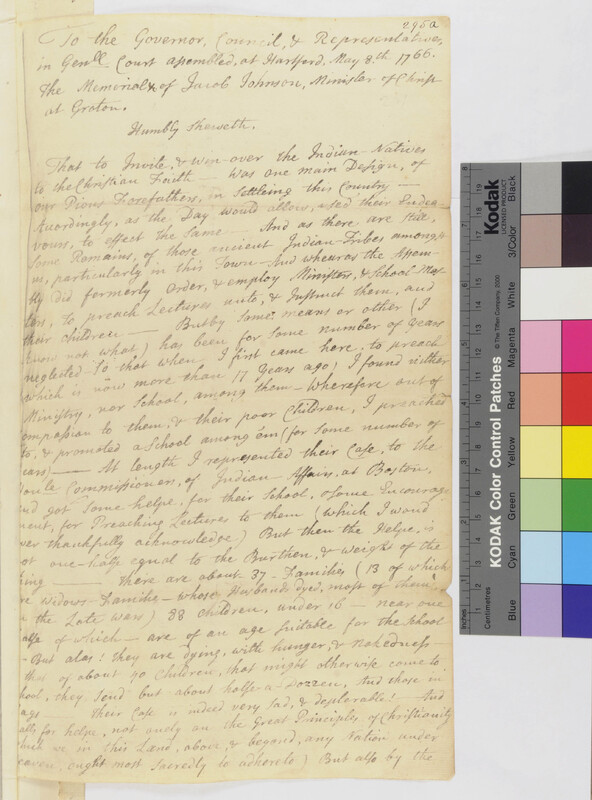 295a
To the Governor, Council, & Representatives,
in Genll Court assembled, at Hartford, May 8.th 1766.
The Memorial of Jacob Johnson, Minister of Christ
at Groton.
Humbly Sheweth.
That to Invite, & win over the Indian Natives
to the Christian Faith — was one main Design, of
our Pious Forefathers, in settling this Country —
Accordingly, as the Day would allow, used their Endea-
vours, to effect the Same — And as there are still,
some Remains, of those ancient Indian Tribes amongst
us, particularly in this Town — And whereas the Assem-
bly did formerly Order, & employ Ministers, & School Mas-
ters, to preach Lectures unto, & Instruct them, and
their children — But by some means or other (I
know not what) has been for some number of years
neglected — So that when I first came here, to preach
which is now more than 17 years ago) I found neither
Ministry, nor School, among them — wherefore out of
ompassion to them, & their poor Children, I preached
to, & promoted a School among 'em (for some number of
ears) — At length I represented their Case, to the
Commissioners, of Indian Affairs, at Boston,
nd got some helpe, for their School, & some Encourage
ment, for Preaching Lectures to them (which I woud
ver thankfully acknowledge) But then the helpe, is
ot one-halfe equal to the Burthen, & weight of the
hing — there are about 37 Families (13 of which
re widows Families — whose Husbands dyed, most of them
n the Late wars) 88 children, under 16 — near one
alfe of which — are of an age suitable for the School
— But alas! they are dying, with hunger, & nakedness —
that of about 40 Children, that might otherwise come to
hool, they send but about halfe-a-dozzen, And those in
ags — Their Case is indeed very sad, & deplorable! — And
alls for helpe, not onely on the Great Principles of Christianity
which we in this Land, above, & beyond, any Nation under
eaven, ought most sacredly to adhere to) But also by the
Kodak
LICENSED PRODUCT
© The Tiffen Company, 2000
KODAK Color Control Patches
Blue
Cyan
Green
Yellow
Red
Magenta
White
3/Color
Black
Inches
Centimetres
1
2
3
4
5
6
7
8
1
2
3
4
5
6
7
8
9
10
11
12
13
14
15
16
17
18
19